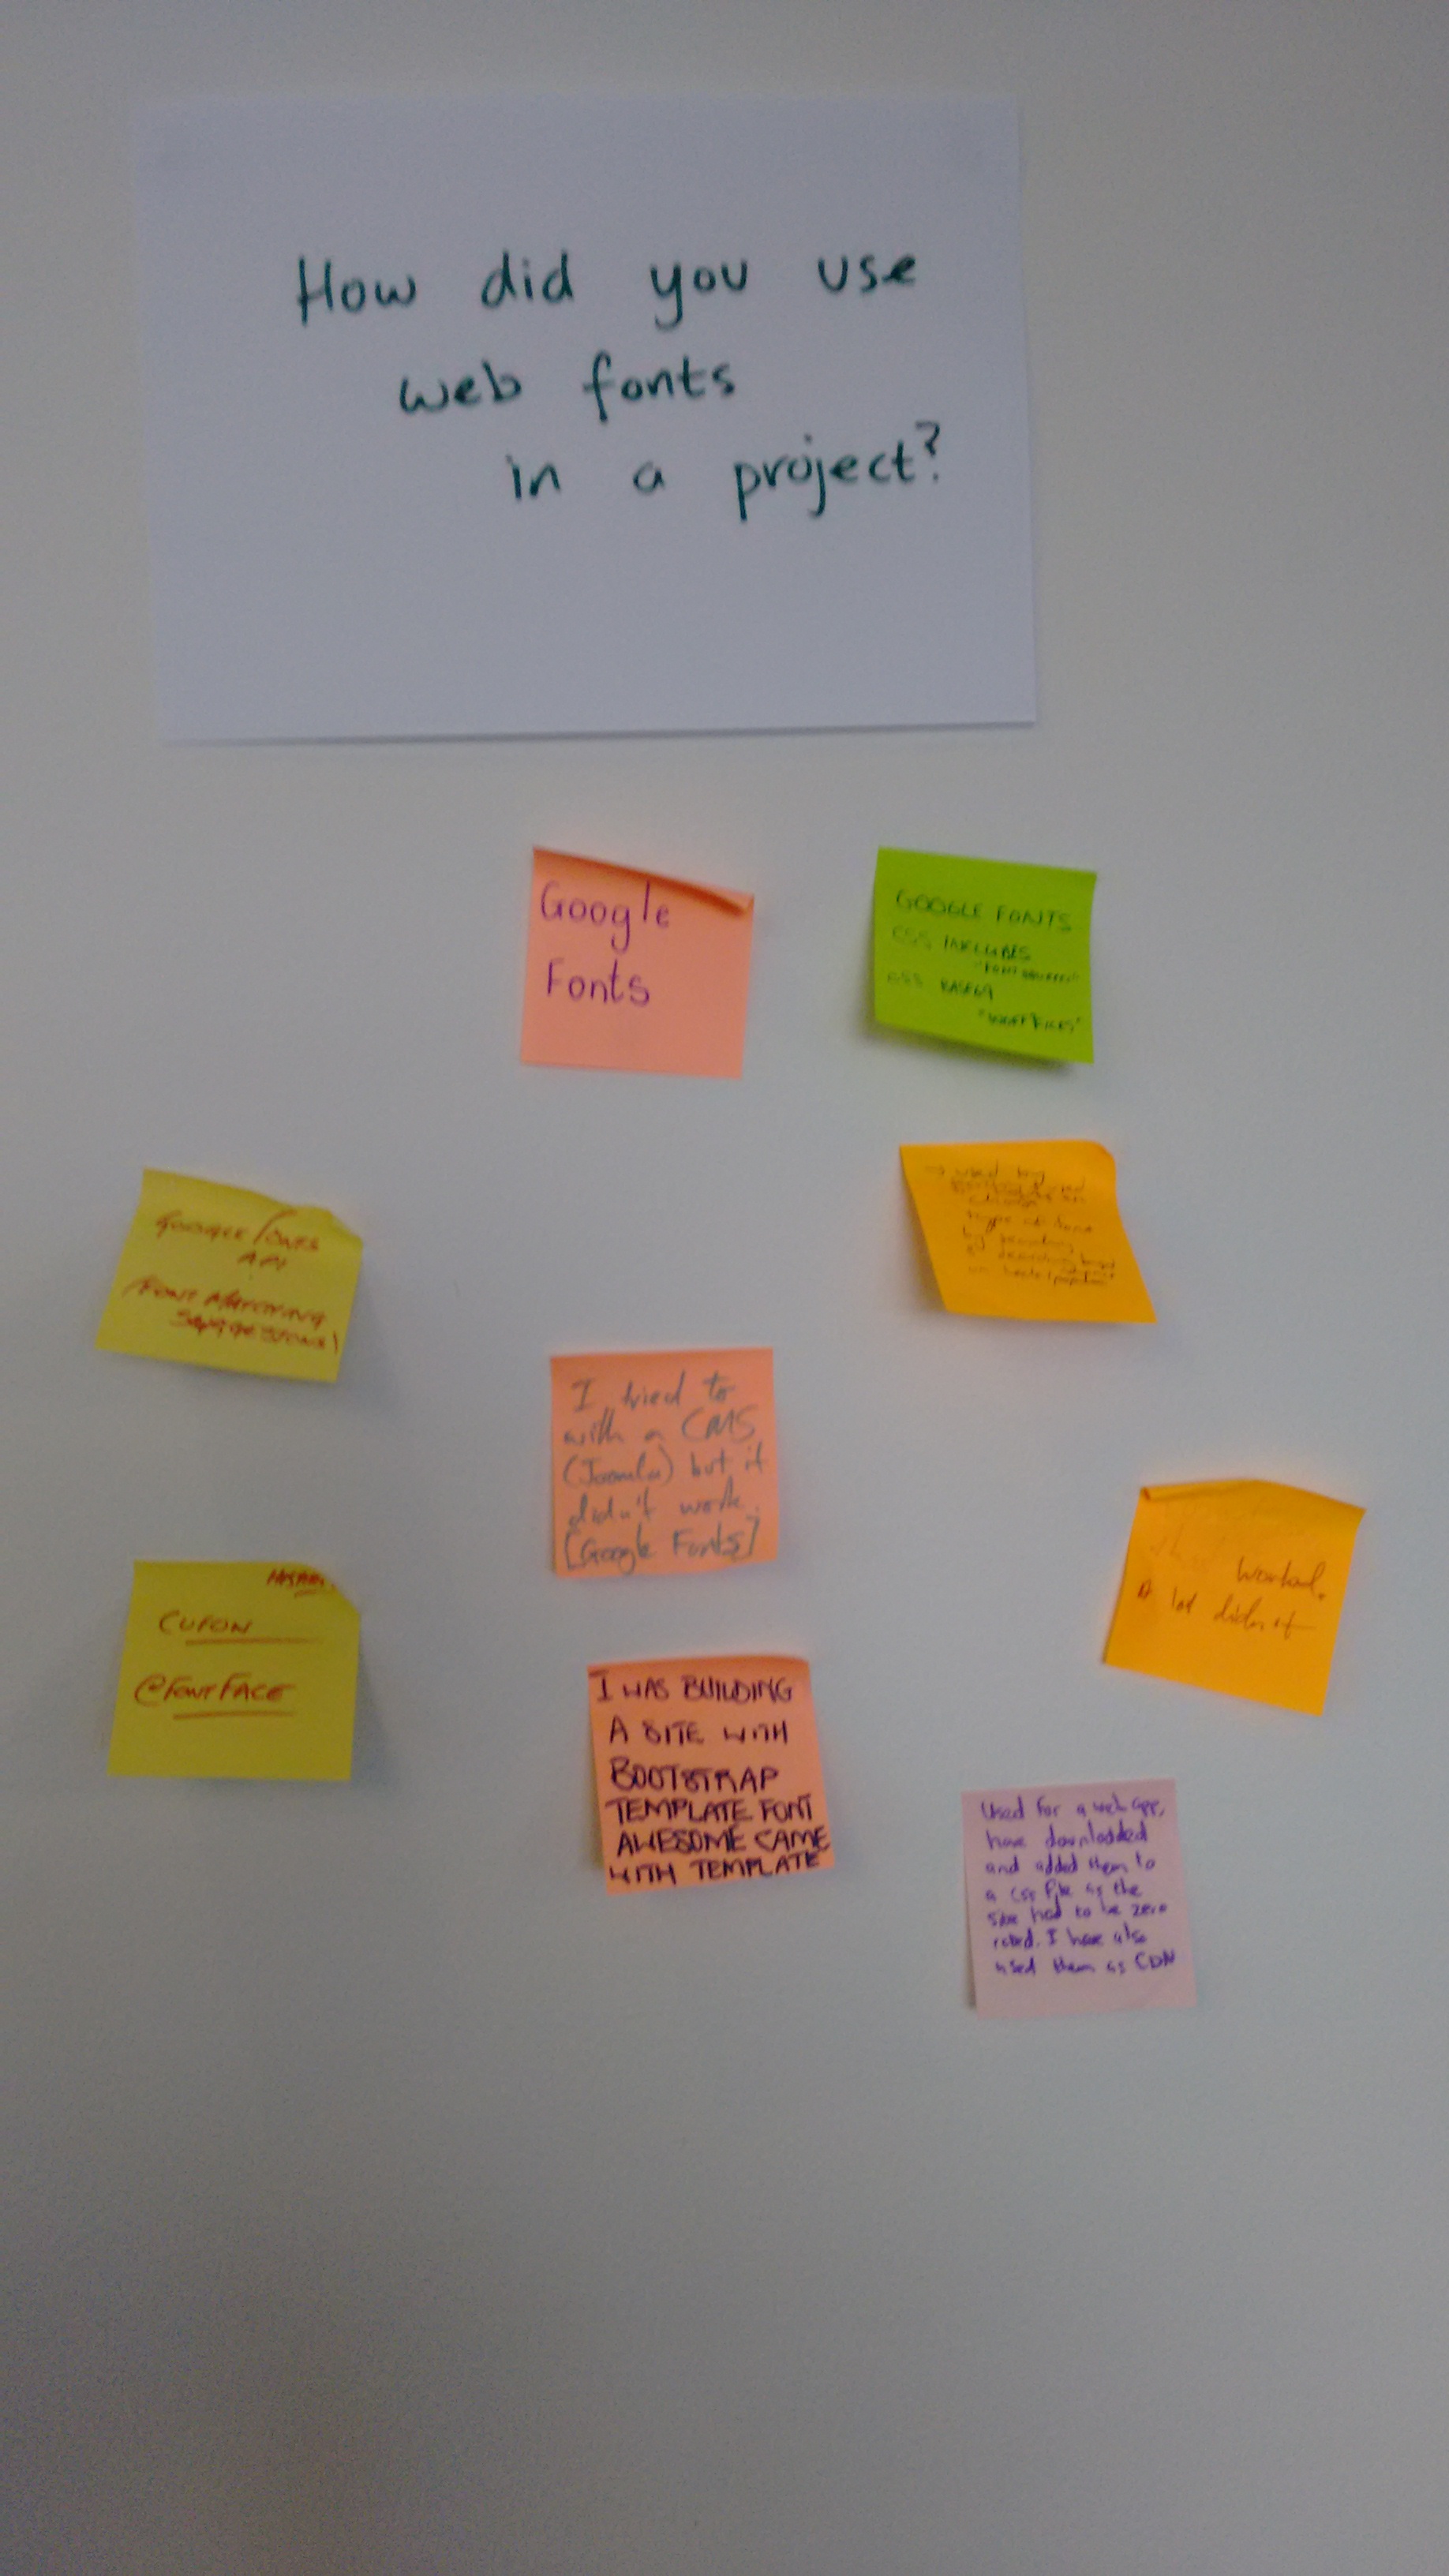 How did you use
web fonts
in a project?
Google
Fonts
GOOGLE FONTS
CSS INCLUDES
CSS BASE64
"WOFF FILES"
GOOGLE FONTS
API
FONT MATCHING
SUGGESTIONS!
→ used by
type of font
by providing
I tried to
with a CMS
(Joomla) but it
didn't work.
[Google Fonts]
worked.
A lot didn't
CUFON
@FONTFACE
I WAS BUILDING
A SITE WITH
BOOTSTRAP
TEMPLATE FONT
AWESOME CAME
WITH TEMPLATE
Used for a web app,
have downloaded
and added them to
a css file as the
site had to be zero
rated. I have also
used them as CDN